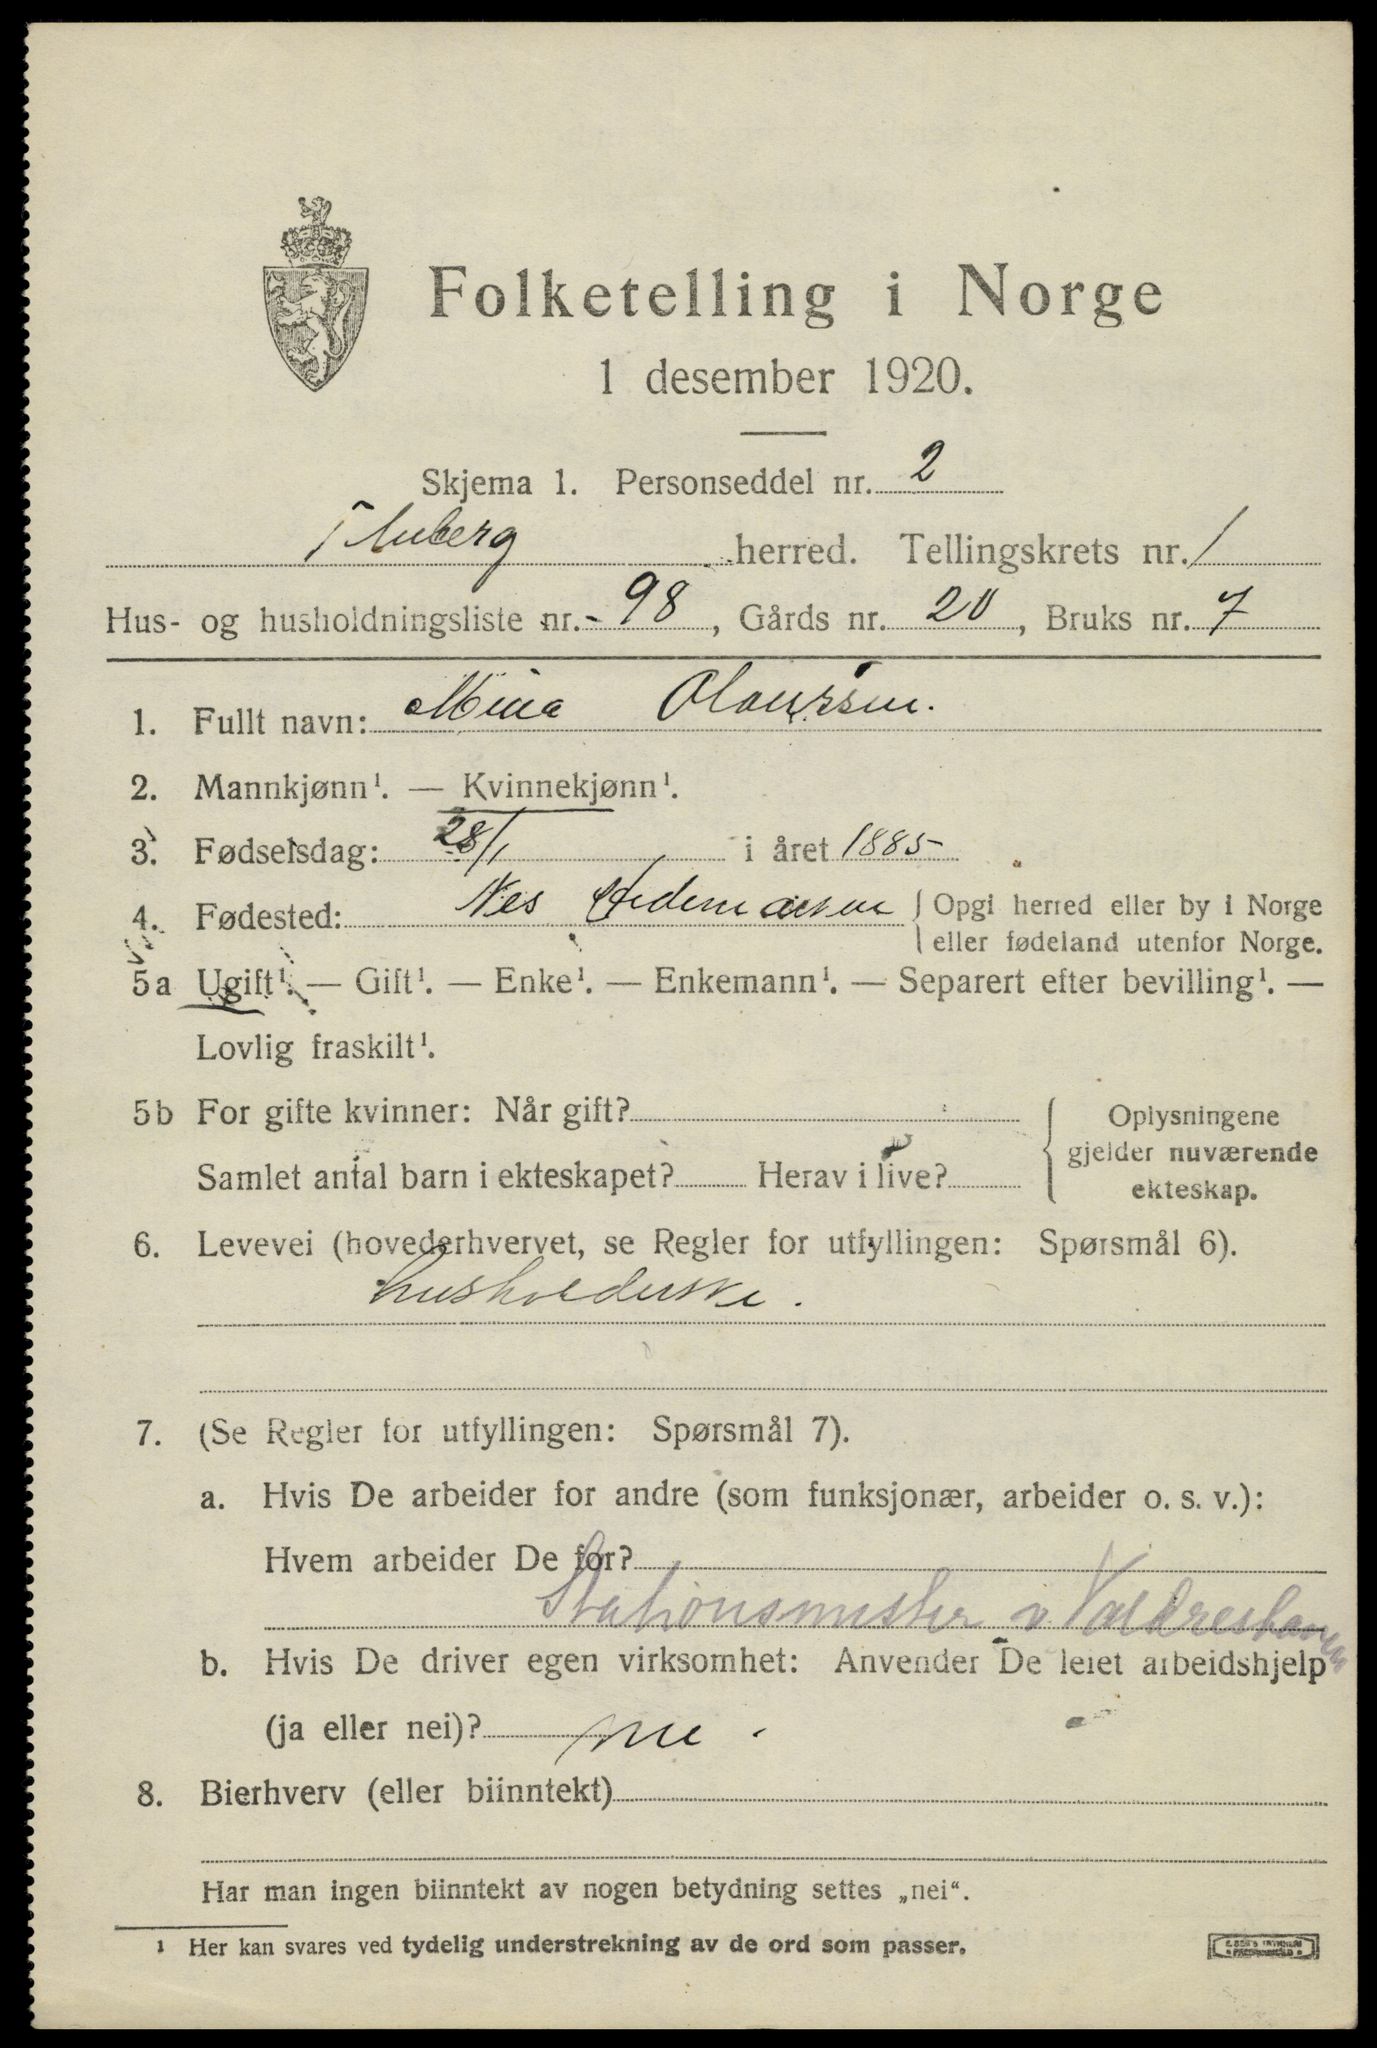 Folketelling i Norge
1 desember 1920.
Skjema 1. Personseddel nr. 2
Fluberg herred. Tellingskrets nr. 1
Hus- og husholdningsliste nr. 98, Gårds nr. 20, Bruks nr. 7
1. Fullt navn: Mina Olaussen.
2. Mannkjønn¹. — Kvinnekjønn¹.
3. Fødselsdag: 28/1 i året 1885
4. Fødested: Nes Hedemarken { Opgi herred eller by i Norge
eller fødeland utenfor Norge.
5a Ugift¹. — Gift¹. — Enke¹. — Enkemann¹. — Separert efter bevilling¹. —
Lovlig fraskilt¹.
5b For gifte kvinner: Når gift?
Samlet antal barn i ekteskapet? Herav i live?
{ Oplysningene
gjelder nuværende
ekteskap.
6. Levevei (hovederhvervet, se Regler for utfyllingen: Spørsmål 6).
husholderske.
7. (Se Regler for utfyllingen: Spørsmål 7).
a. Hvis De arbeider for andre (som funksjonær, arbeider o. s. v.):
Hvem arbeider De for?
Stationsmester v Valdresbanen
b. Hvis De driver egen virksomhet: Anvender De leiet arbeidshjelp
(ja eller nei)?
8. Bierhverv (eller biinntekt)
Har man ingen biinntekt av nogen betydning settes „nei“.
¹ Her kan svares ved tydelig understrekning av de ord som passer.